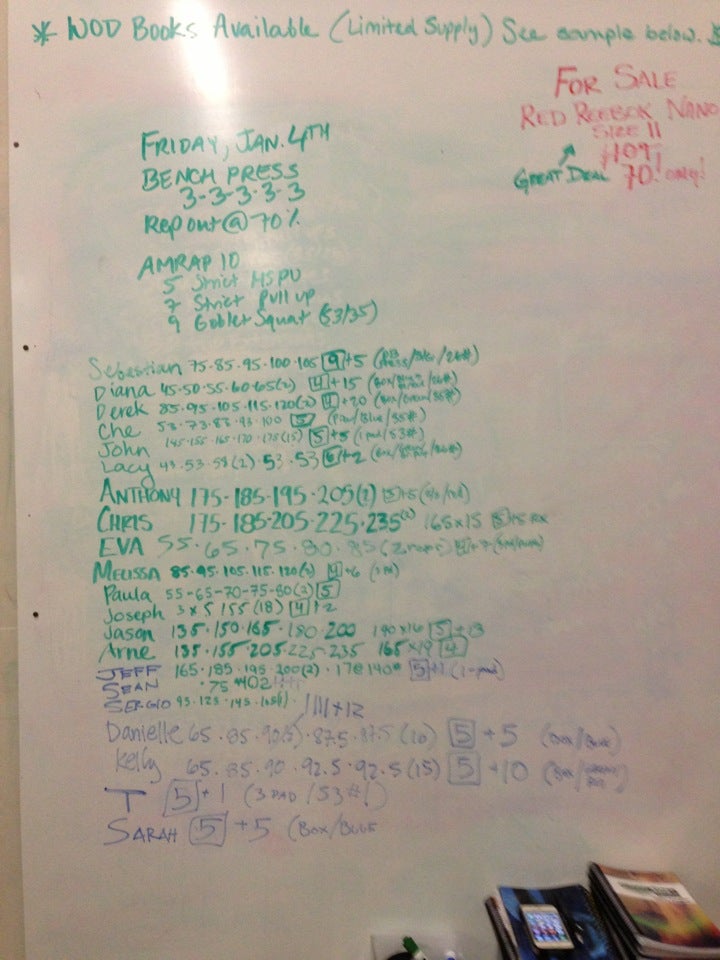 * WOD Books Available (Limited Supply) See sample below.
FOR SALE
RED REEBOK NANO
SIZE 11
$109
GREAT DEAL 70! only!
FRIDAY, JAN. 4TH
BENCH PRESS
3-3-3-3-3
Rep out @ 70%
AMRAP 10
5 Strict HSPU
7 Strict Pull up
9 Goblet Squat (53/35)
Sebastian 75-85-95-100-105 9+5
Diana 45-50-55-60-65(2) 4+15
Derek 85-95-105-115-120(2) 4+20
Che 53-73-83-93-100 5 (Pad/Blue/35#)
John 145-155-165-170-175(15) 5+5 (1 pad/53#)
Lacy 43-53-58(2)-53-53 6+2
ANTHONY 175-185-195-205(2) 5+5
CHRIS 175-185-205-225-235 165x15 5+15 RX
EVA 55-65-75-80-85(2 reps)
MELISSA 85-95-105-115-120 4+6
Paula 55-65-70-75-80(2) 5
Joseph 3x5 155(18) 4+2
Jason 135-150-165-180-200 140x16 5+13
Arne 135-155-205-225-235 165x19 4
JEFF 165-185-195-200(2) 140# 5+1 (1-pad)
SEAN
SERGIO 95-125-145
1111+12
Danielle 65-85-90-87.5-87.5(16) 5+5 (Box/Blue)
Kelly 65-85-90-92.5-92.5(15) 5+10
T 5+1 (3 PAD/53#)
SARAH 5+5 (BOX/BLUE